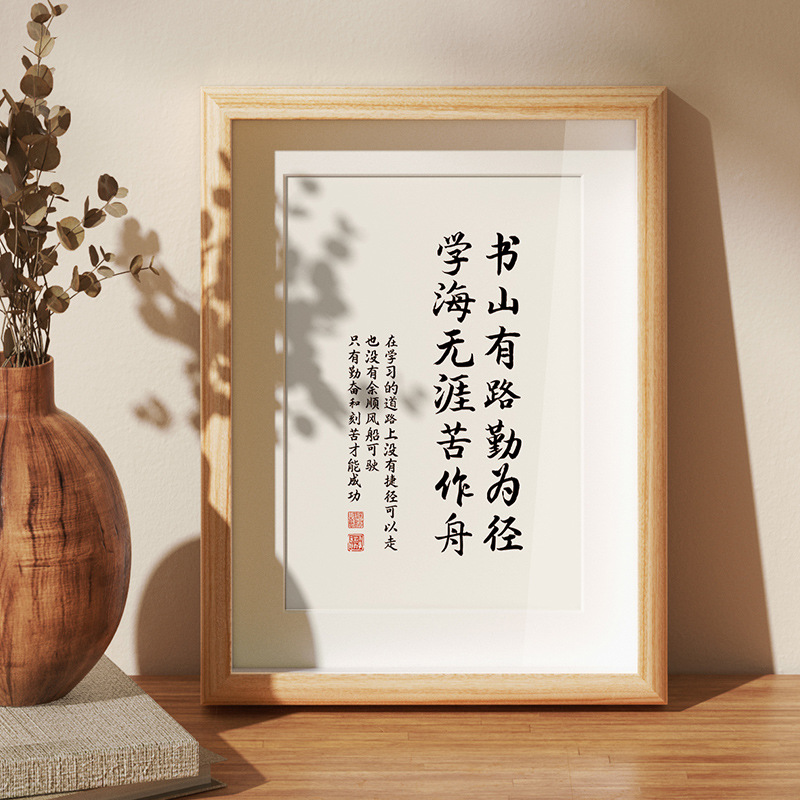 书山有路勤为径
学海无涯苦作舟
在学习的道路上没有捷径可以走
也没有余顺风船可驶
只有勤奋和刻苦才能成功